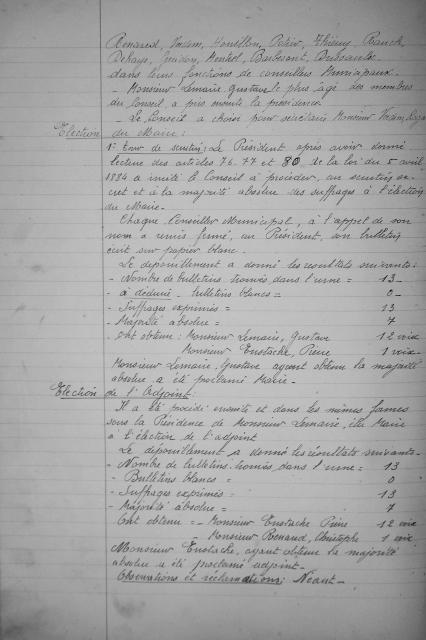 Renaud, Houillon, Thiéry, Ranck,
Dehaye, Guidon, Henkel, Barbesant, Dussaulx
dans leurs fonctions de conseillers Municipaux.
- Monsieur Lemaire Gustave le plus âgé des membres
du Conseil a pris ensuite la présidence.
- Le Conseil a choisi pour secrétaire Monsieur
Election du Maire :
1er Tour de scrutin : Le Président après avoir donné
lecture des articles 76. 77 et 80 de la loi du 5 avril
1884 a invité le Conseil à procéder, au scrutin se-
cret et à la majorité absolue des suffrages à l'élection
du Maire.
Chaque Conseiller Municipal, à l'appel de son
nom a remis fermé, au Président, son bulletin
écrit sur papier blanc.
Le dépouillement a donné les résultats suivants :
- Nombre de bulletins trouvés dans l'urne = 13 -
- à déduire - bulletins blancs = 0 -
- Suffrages exprimés = 13
- Majorité absolue = 7
- Ont obtenu : Monsieur Lemaire, Gustave 12 voix
Monsieur Eustache, Pierre 1 voix -
Monsieur Lemaire, Gustave ayant obtenu la majorité
absolue a été proclamé Maire -
Election de l'Adjoint.
Il a été procédé ensuite et dans les mêmes formes
sous la Présidence de Monsieur Lemaire, élu Maire
à l'élection de l'adjoint
Le dépouillement a donné les résultats suivants -
- Nombre de bulletins trouvés dans l'urne = 13
- Bulletins blancs = 0
- Suffrages exprimés = 13
- Majorité absolue = 7
Ont obtenu = - Monsieur Eustache Pierre 12 voix
Monsieur Renaud, Christophe 1 voix
Monsieur Eustache, ayant obtenu la majorité
absolue a été proclamé adjoint -
Observations et réclamations : Néant -